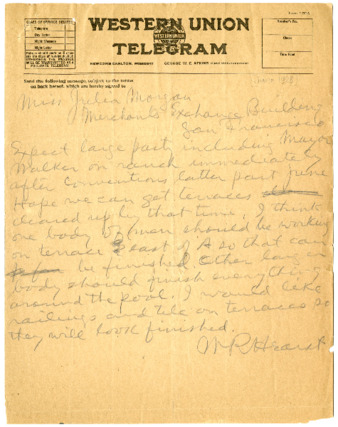 WESTERN UNION
TELEGRAM
WESTERN UNION
NEWCOMB CARLTON, PRESIDENT GEORGE W. E. ATKINS
CLASS OF SERVICE DESIRED
Telegram
Day Letter
Night Message
Night Letter
Send the following message, subject to the terms
on back hereof, which are hereby agreed to
Miss Julia Morgan
Merchants Exchange Building
San Francisco
Expect large party including Mayor
Walker on ranch immediately
after convention, latter part June
Hope we can get terraces
cleared up by that time, I think
one body of men should be working
on terrace east of A so that can
be finished. Other large
body should finish everything
around the pool. I would like
railings and tile on terraces so
they will look finished.
W R Hearst